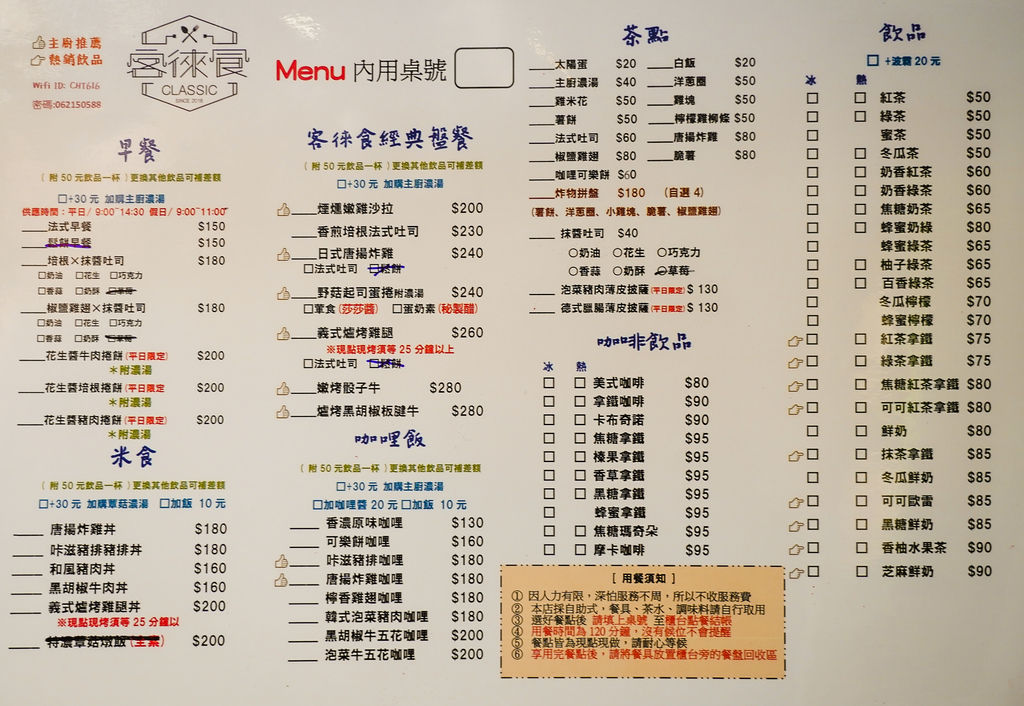 主廚推薦
熱銷飲品
Wifi ID: CHT616
密碼:062150588
客徠食
CLASSIC
SINCE 2018
Menu 內用桌號
早餐
( 附 50 元飲品一杯 ) 更換其他飲品可補差額
□+30 元 加購主廚濃湯
供應時間:平日/ 9:00~14:30 假日/ 9:00~11:00
___法式早餐 $150
___鬆餅早餐 $150
___培根×抹醬吐司 $180
□奶油 □花生 □巧克力
□香蒜 □奶酥 □草莓
___椒鹽雞翅×抹醬吐司 $180
□奶油 □花生 □巧克力
□香蒜 □奶酥 □草莓
___花生醬牛肉捲餅(平日限定) $200
*附濃湯
___花生醬培根捲餅(平日限定 $200
*附濃湯
___花生醬豬肉捲餅(平日限定) $200
*附濃湯
米食
( 附 50 元飲品一杯 ) 更換其他飲品可補差額
□+30 元 加購蕈菇濃湯 □加飯 10 元
___ 唐揚炸雞丼 $180
___ 咔滋豬排豬排丼 $180
___ 和風豬肉丼 $160
___ 黑胡椒牛肉丼 $160
___ 義式爐烤雞腿丼 $200
※現點現烤須等 25 分鐘以
___ 特濃蕈菇燉飯(全素) $200
客徠食經典盤餐
( 附 50 元飲品一杯 ) 更換其他飲品可補差額
□+30 元 加購主廚濃湯
___煙燻嫩雞沙拉 $200
___香煎培根法式吐司 $230
___日式唐揚炸雞 $240
□法式吐司 □鬆餅
___野菇起司蛋捲附濃湯 $240
□葷食(莎莎醬) □蛋奶素(秘製醋)
___義式爐烤雞腿 $260
※現點現烤須等 25 分鐘以上
□法式吐司 □鬆餅
___嫩烤骰子牛 $280
___爐烤黑胡椒板腱牛 $280
咖哩飯
( 附 50 元飲品一杯 ) 更換其他飲品可補差額
□+30 元 加購主廚濃湯
□加咖哩醬 20 元 □加飯 10 元
___ 香濃原味咖哩 $130
___ 可樂餅咖哩 $160
___ 咔滋豬排咖哩 $180
___ 唐揚炸雞咖哩 $180
___ 檸香雞翅咖哩 $180
___ 韓式泡菜豬肉咖哩 $180
___ 黑胡椒牛五花咖哩 $200
___ 泡菜牛五花咖哩 $200
茶點
___太陽蛋 $20 ___白飯 $20
___主廚濃湯 $40 ___洋蔥圈 $50
___雞米花 $50 ___雞塊 $50
___薯餅 $50 ___檸檬雞柳條 $50
___法式吐司 $60 ___唐揚炸雞 $80
___椒鹽雞翅 $80 ___脆薯 $80
___咖哩可樂餅 $60
___炸物拼盤 $180 (自選 4)
(薯餅、洋蔥圈、小雞塊、脆薯、椒鹽雞翅)
___ 抹醬吐司 $40
○奶油 ○花生 ○巧克力
○香蒜 ○奶酥 ○草莓
___ 泡菜豬肉薄皮披薩(平日限定) $ 130
___ 德式臘腸薄皮披薩(平日限定) $ 130
咖啡飲品
冰 熱
□ □ 美式咖啡 $80
□ □ 拿鐵咖啡 $90
□ □ 卡布奇諾 $90
□ □ 焦糖拿鐵 $95
□ □ 榛果拿鐵 $95
□ □ 香草拿鐵 $95
□ □ 黑糖拿鐵 $95
□ 蜂蜜拿鐵 $95
□ □ 焦糖瑪奇朵 $95
□ □ 摩卡咖啡 $95
[ 用餐須知 ]
① 因人力有限,深怕服務不周,所以不收服務費
② 本店採自助式,餐具、茶水、調味料請自行取用
③ 選好餐點後 請填上桌號 至櫃台點餐結帳
④ 用餐時間為 120 分鐘,沒有候位不會提醒
⑤ 餐點皆為現點現做,請耐心等候
⑥ 享用完餐點後,請將餐具放置櫃台旁的餐盤回收區
飲品
□ +波霸 20 元
冰 熱
□ □ 紅茶 $50
□ □ 綠茶 $50
□ 蜜茶 $50
□ □ 冬瓜茶 $50
□ □ 奶香紅茶 $60
□ □ 奶香綠茶 $60
□ □ 焦糖奶茶 $65
□ □ 蜂蜜奶綠 $80
□ 蜂蜜綠茶 $65
□ □ 柚子綠茶 $65
□ □ 百香綠茶 $65
□ 冬瓜檸檬 $70
□ 蜂蜜檸檬 $70
□ □ 紅茶拿鐵 $75
□ □ 綠茶拿鐵 $75
□ □ 焦糖紅茶拿鐵 $80
□ □ 可可紅茶拿鐵 $80
□ □ 鮮奶 $80
□ □ 抹茶拿鐵 $85
□ □ 冬瓜鮮奶 $85
□ □ 可可歐蕾 $85
□ □ 黑糖鮮奶 $85
□ □ 香柚水果茶 $90
□ □ 芝麻鮮奶 $90